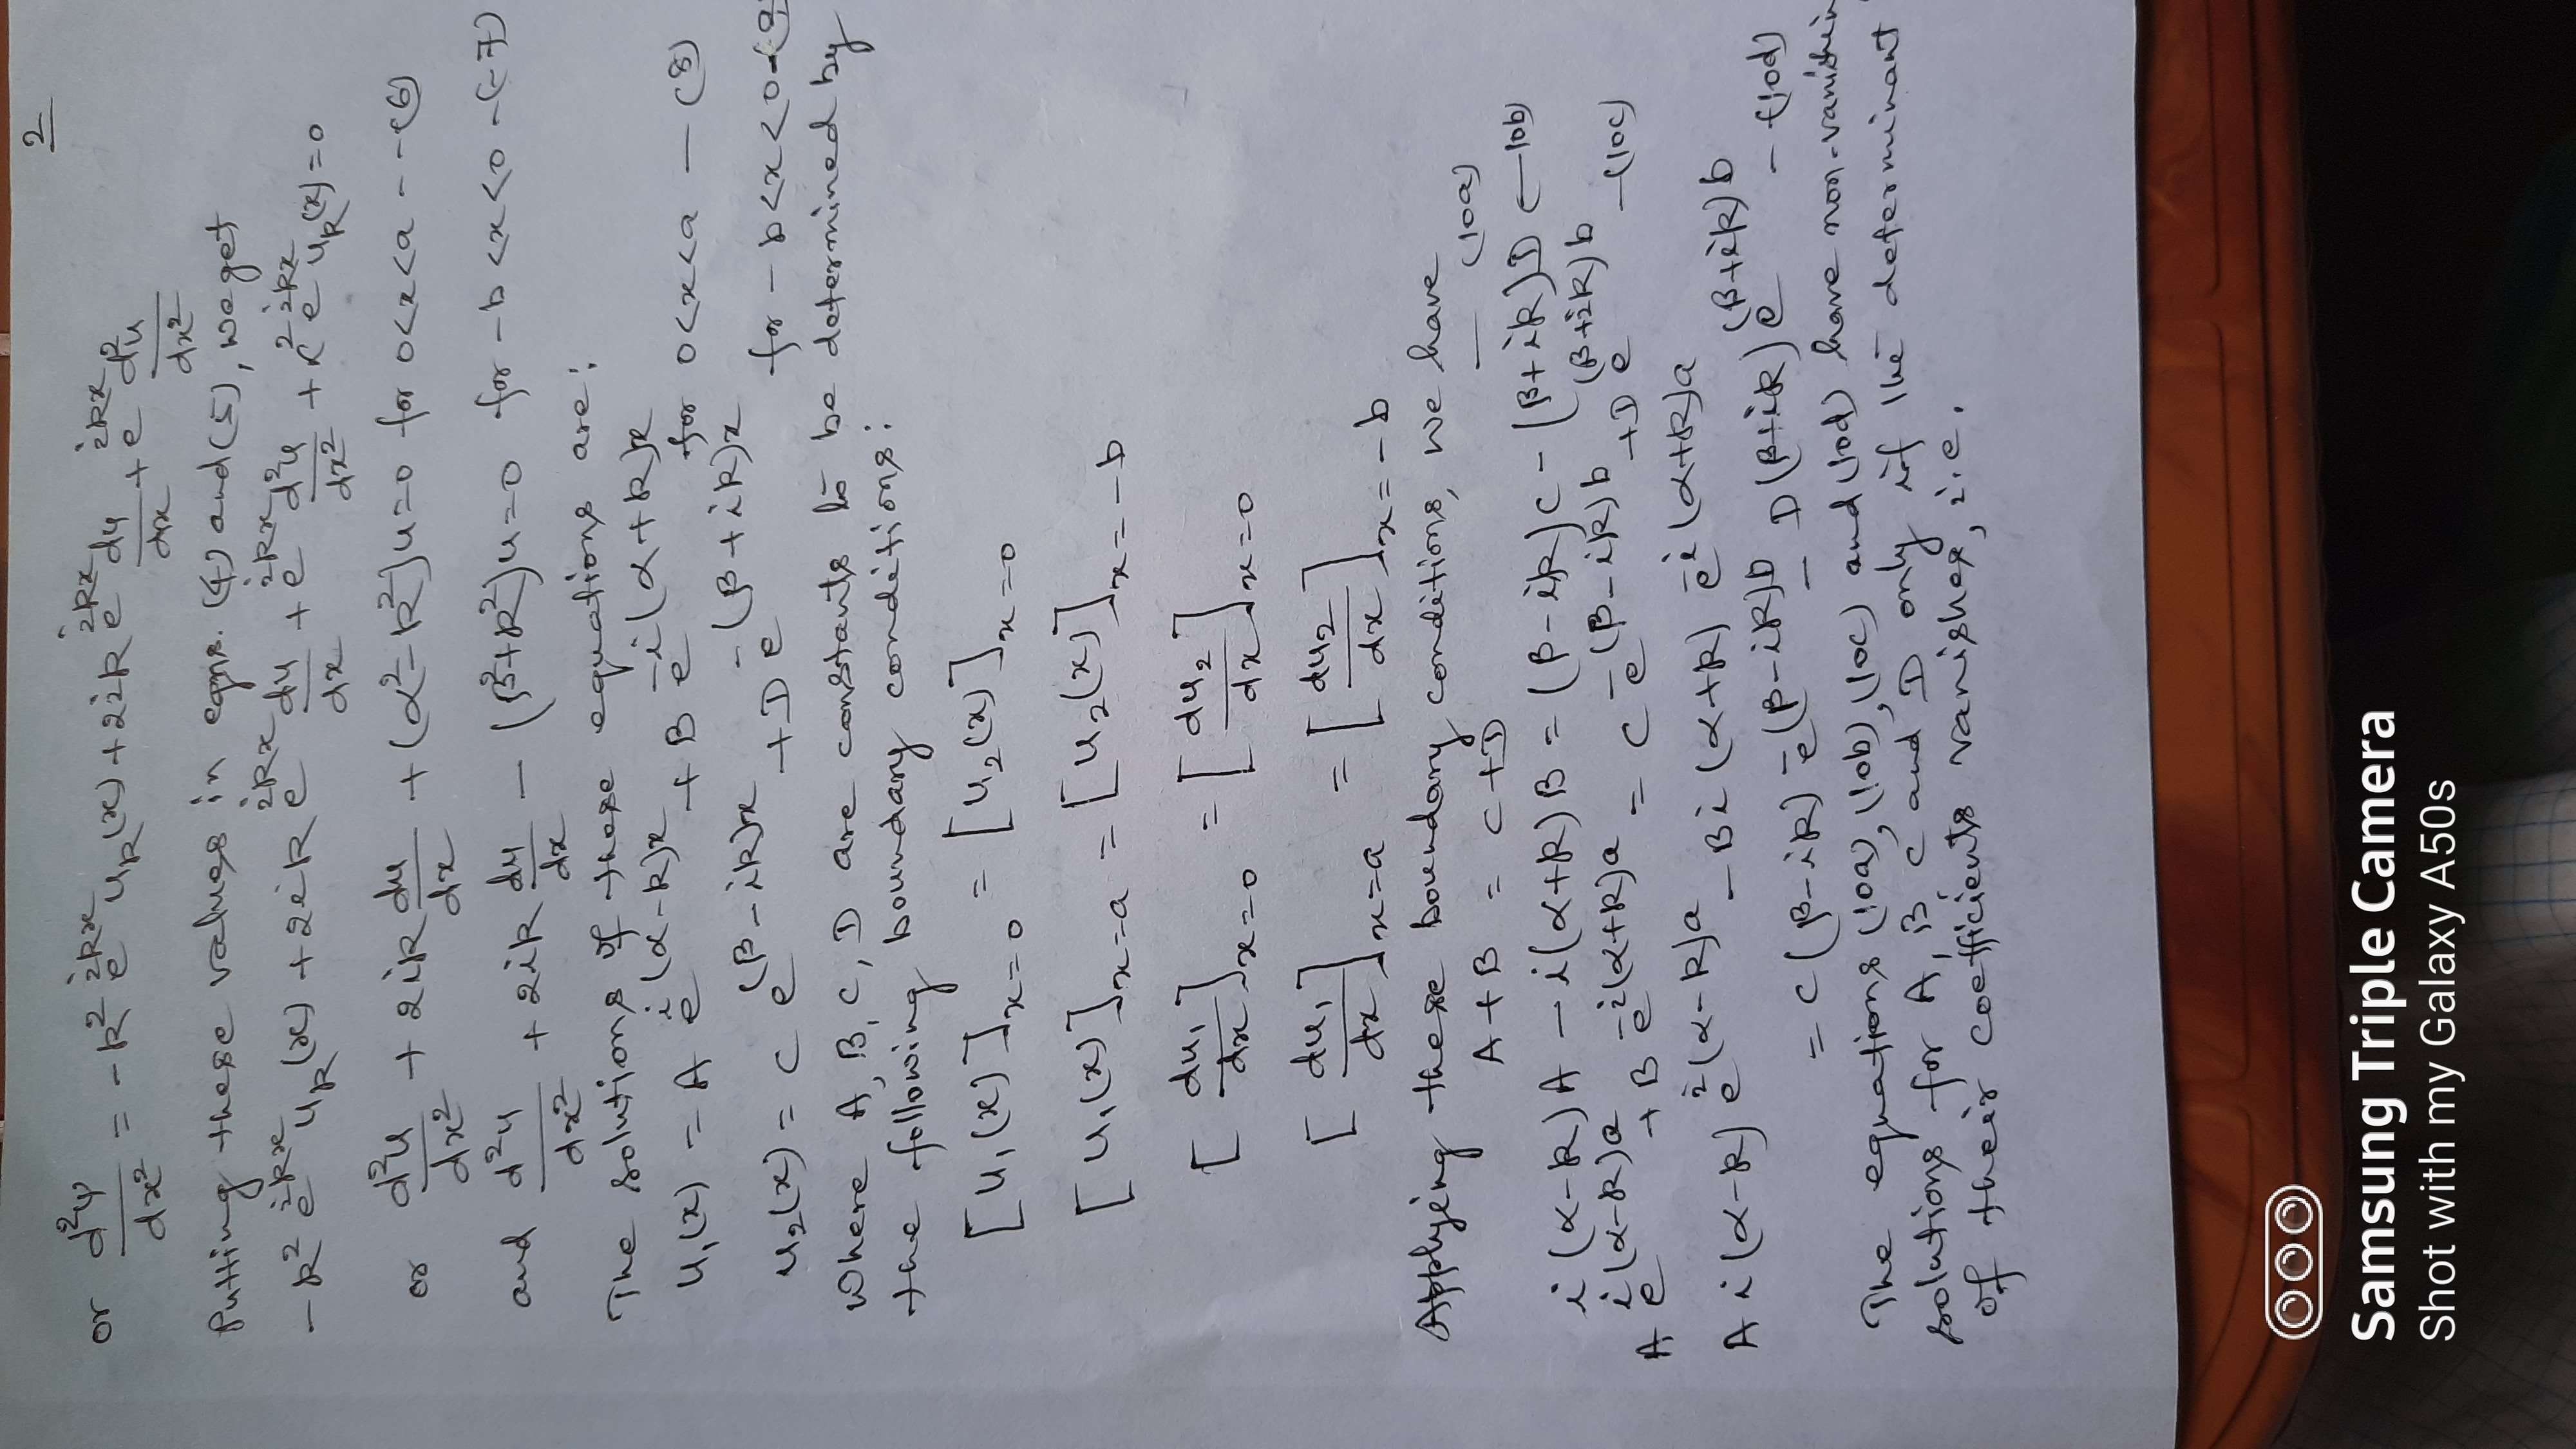 2
or d²ψ/dx² = -k² e^{ikx} u_k(x) + 2ik e^{ikx} du/dx + e^{ikx} d²u/dx²
Putting these values in eqns. (4) and (5), we get
-k² e^{ikx} u_k(x) + 2ik e^{ikx} du/dx + e^{ikx} d²u/dx² + k² e^{ikx} u_k(x) = 0
or d²u/dx² + 2ik du/dx + (α² - k²)u = 0 for 0<x<a - - (6)
and d²u/dx² + 2ik du/dx - (β² + k²)u = 0 for -b<x<0 - (7)
The solutions of these equations are:
u₁(x) = A e^{i(α-k)x} + B e^{-i(α+k)x} for 0<x<a — (8)
u₂(x) = C e^{(β-ik)x} + D e^{-(β+ik)x} for -b<x<0 - (9)
where A, B, C, D are constants to be determined by
the following boundary conditions:
[u₁(x)]_{x=0} = [u₂(x)]_{x=0}
[u₁(x)]_{x=a} = [u₂(x)]_{x=-b}
[du₁/dx]_{x=0} = [du₂/dx]_{x=0}
[du₁/dx]_{x=a} = [du₂/dx]_{x=-b}
Applying these boundary conditions, we have
A + B = C + D — (10a)
i(α-k)A - i(α+k)B = (β-ik)C - (β+ik)D (-10b)
A e^{i(α-k)a} + B e^{-i(α+k)a} = C e^{-(β-ik)b} + D e^{(β+ik)b} - (10c)
A i(α-k) e^{i(α-k)a} - B i(α+k) e^{-i(α+k)a}
= C(β-ik) e^{-(β-ik)b} - D(β+ik) e^{(β+ik)b} - (10d)
The equations (10a), (10b), (10c) and (10d) have non-vanishin
solutions for A, B C and D only if the determinant
of their coefficients vanishes, i.e.
Samsung Triple Camera
Shot with my Galaxy A50s